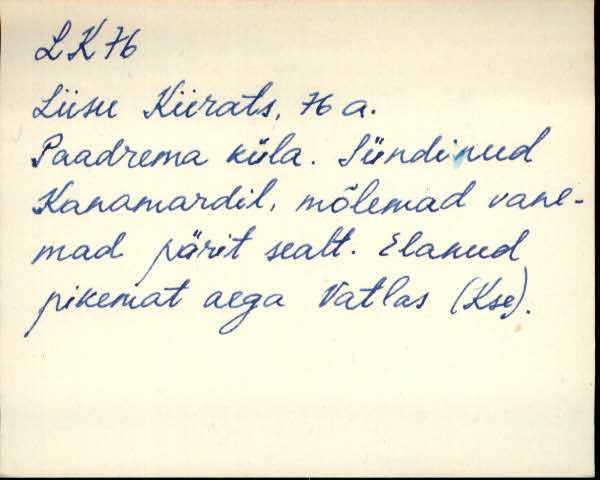 LK76
Liisu Kiirats, 76 a.
Paadrema küla. Sündinud
Kanamardil, mõlemad vane-
mad pärit sealt. Elanud
pikemat aega Vatlas (Kse).